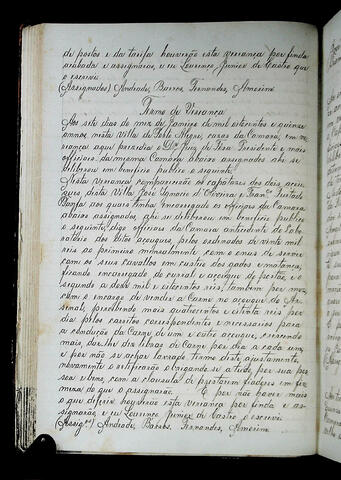 de portas e da tarifa houverão esta veriança por finda
acabada e assignárão, e eu Lourenço Junior de Castro que
o escrevi
(Assignados) Andrade, Barros Fernandes, Amorim
Termo de Vereança
Aos sete dias do mez de Janeiro de mil oitocentos e quinze
annos, nesta Villa de Porto Alegre, casas da Camara, em ve
reança aqui presidio o Dtor Juiz de Fóra Presidente e mais
officiaes da mesma Camara abaixo assignados ahi se
deliberou em beneficio publico o seguinte.
Nesta veriança comparecerão os capatazes dos dois açou
gues desta Villa José Ignacio d' Oliveira e Franco Furtado
aos quais tinha encarregado os officiaes da Camara
abaixo assignados, ahi se deliberou em beneficio publico
o seguinte, digo officiaes da Camara antecedente
dos ditos açougues, pelos ordenados de vinte mil
reis ao primeiro mensalmente, com o onus de servir
com os seus cavallos em custeo dos gados e matança,
ficando encarregado do curral e açougue do portão, e o
segundo a doze mil e oitocentos reis, tambem por mez
com o encargo de vender a Carne no açougue do Ar
senal, percebendo mais quatrocentos e oitenta reis por
dia pelos carretos correspondentes e necessarios para
a condução da Carne de um e outro açougue, e vencendo
mais, dar-lhe dez libras de Carne por dia a cada um
e por não se achar lavrado termo deste ajustamento,
novamente o retificarão obrigando-se a tudo por sua pes
soa e bens, com a clausula de prestarem fiadores em fir
meza do que o assignarão. E por não haver mais
o que deferir houverão esta veriança por finda e as-
signárão, e eu Lourenço Junior de Castro, o escrevi
(Assigos) Andrade, Barros, Fernandes, Amorim